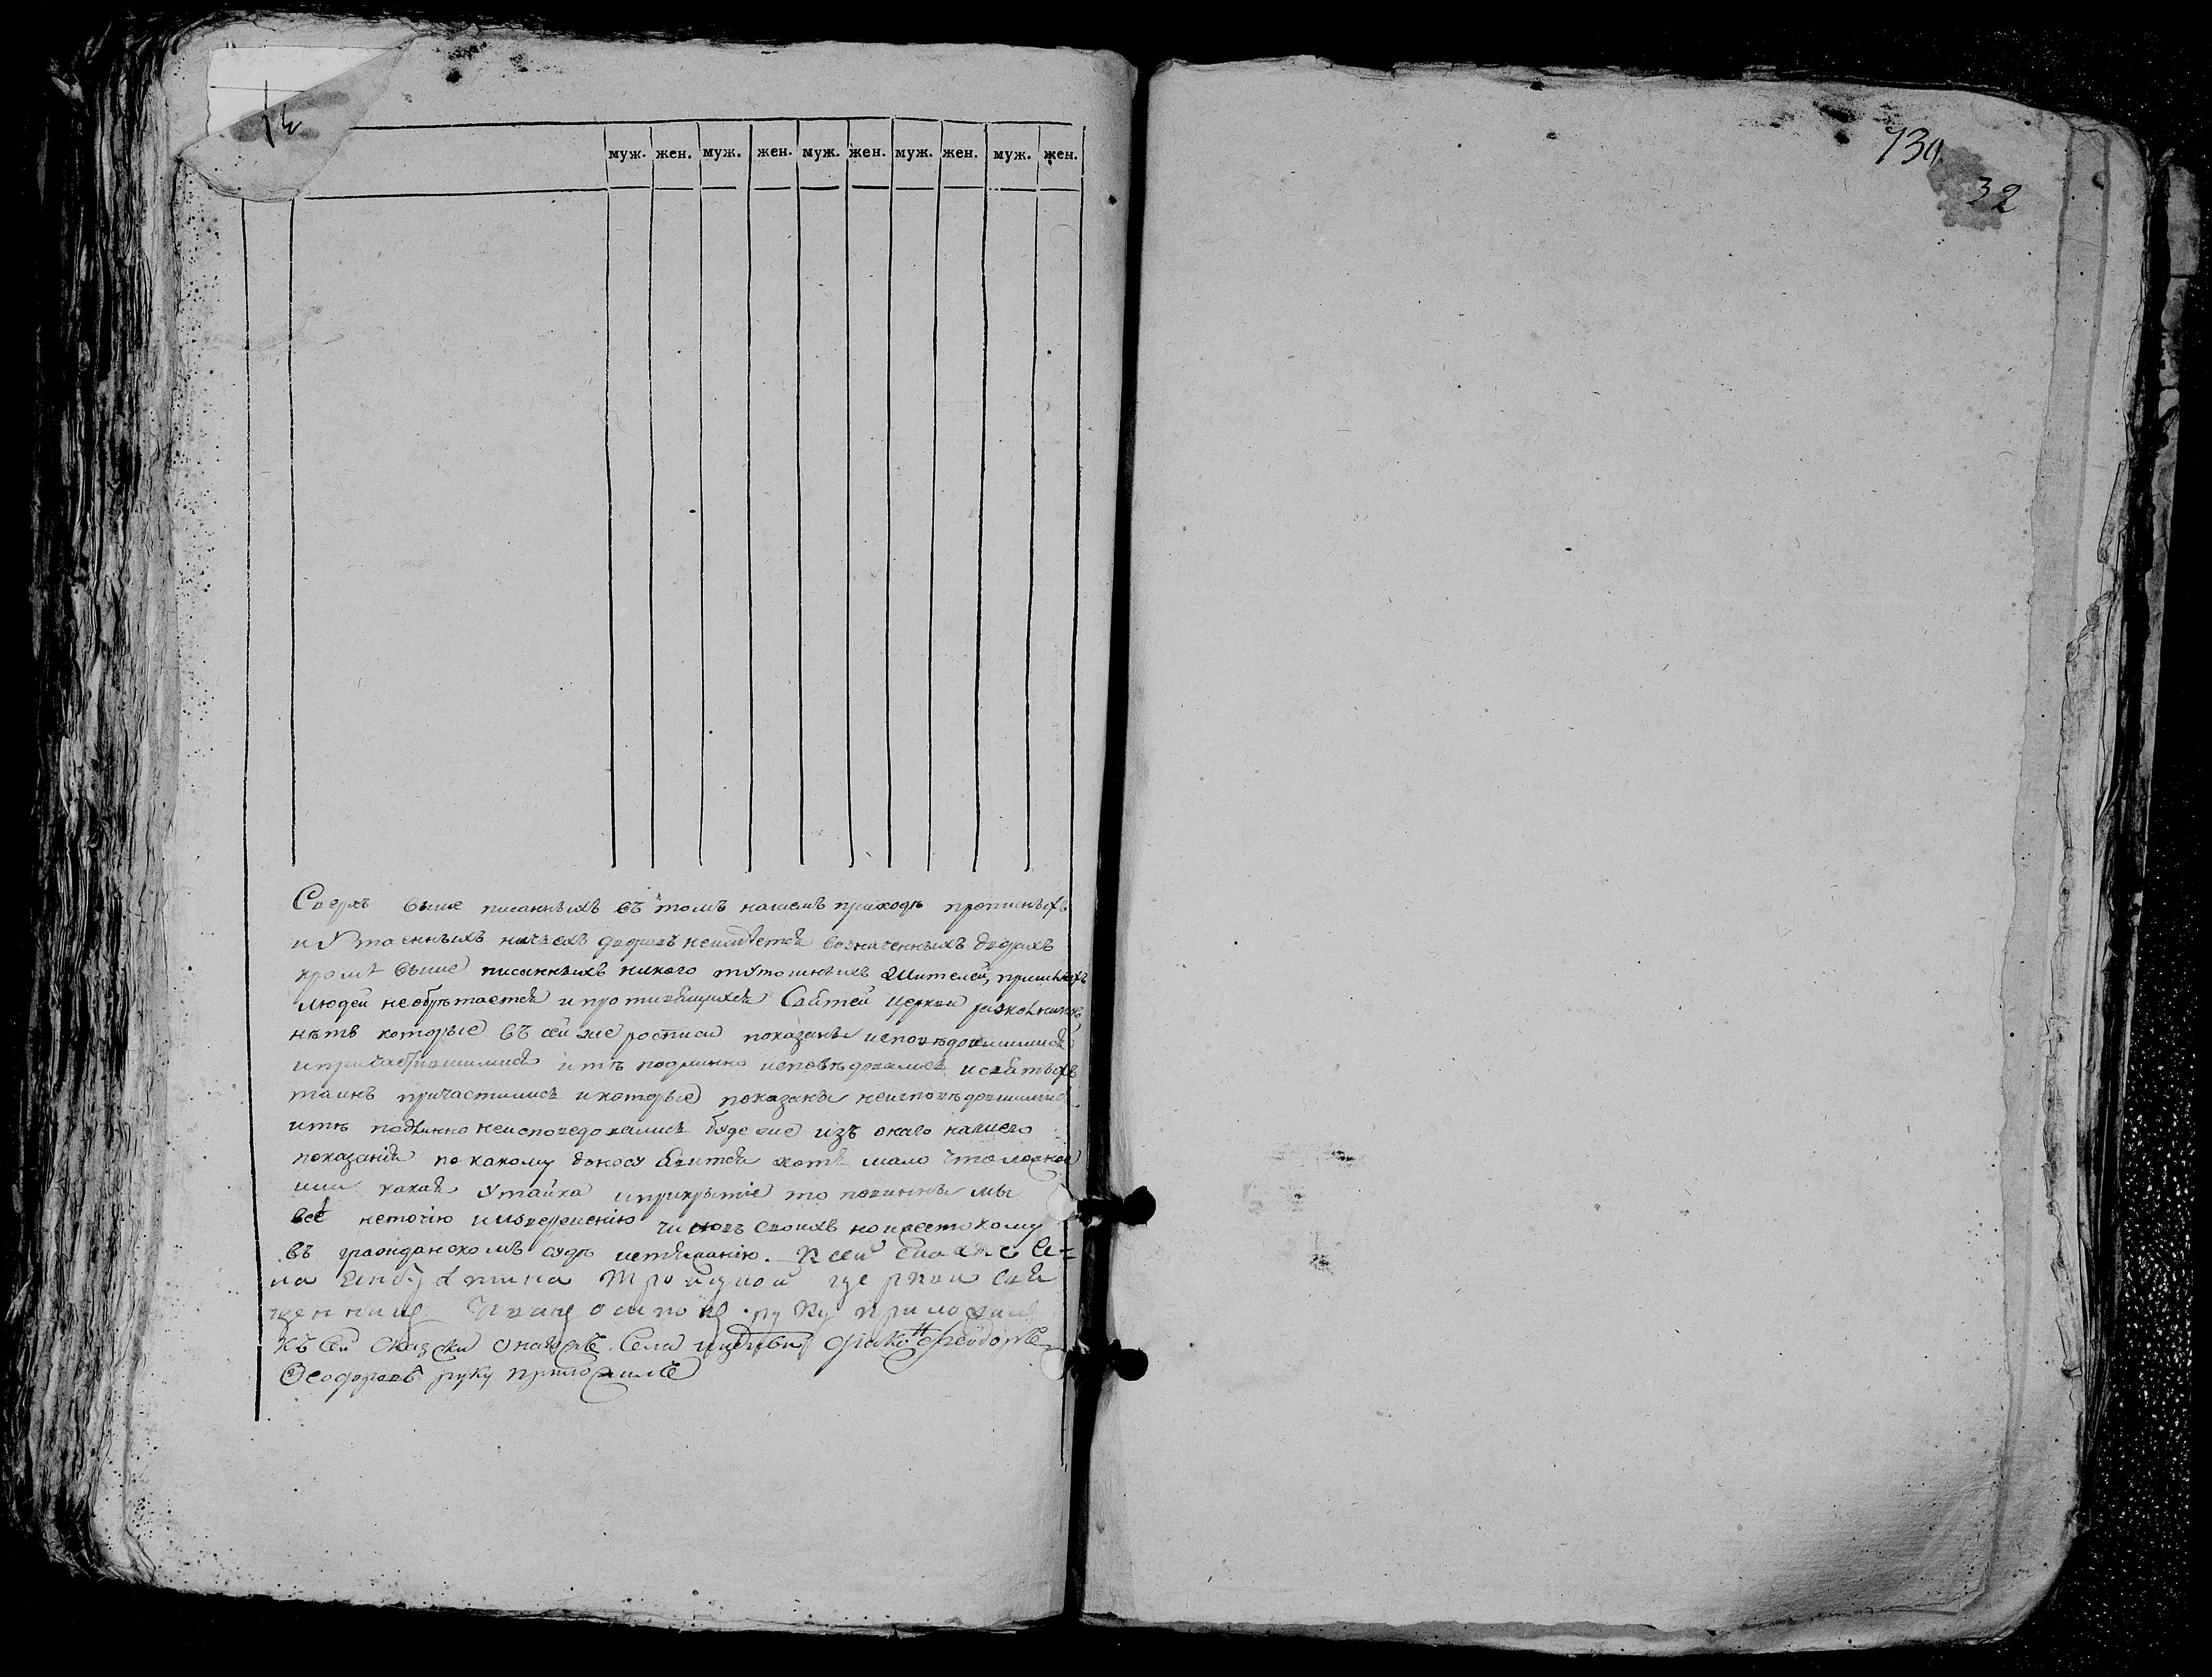 муж. жен. муж. жен. муж. жен. муж. жен. муж. жен.
130
32
Сверхъ выше писанныхъ въ томъ нашемъ приходѣ прописныхъ
и утаенныхъ ничьихъ дворовъ неимѣется возначенныхъ дворахъ
кромѣ выше писанныхъ никого тутошныхъ жителей, пришлыхъ
людей необрѣтается и противящихся Святей церкви расколниковъ
нѣтъ которые въ сей же росписи показаны исповѣдовшимися
и причастившимися и тѣ подлинно исповѣдовались и святыхъ
таинъ причастились и которые показаны неисповѣдовшимися
и тѣ подлинно неисповедовались буде же изъ онаго нашего
показания по какому доносу явится хотя мало что ложное
или какая утайка и прикрытие то повинны мы
все неточию извержению чиновъ своихъ но и жестокому
въ гражданскомъ суде истязанию. К сей скаске се-
ла Троицкой церкви свя
щенникъ руку приложилъ
Къ сей скаски онагожъ села церкви Феодоръ
Феодоровъ руку приложилъ